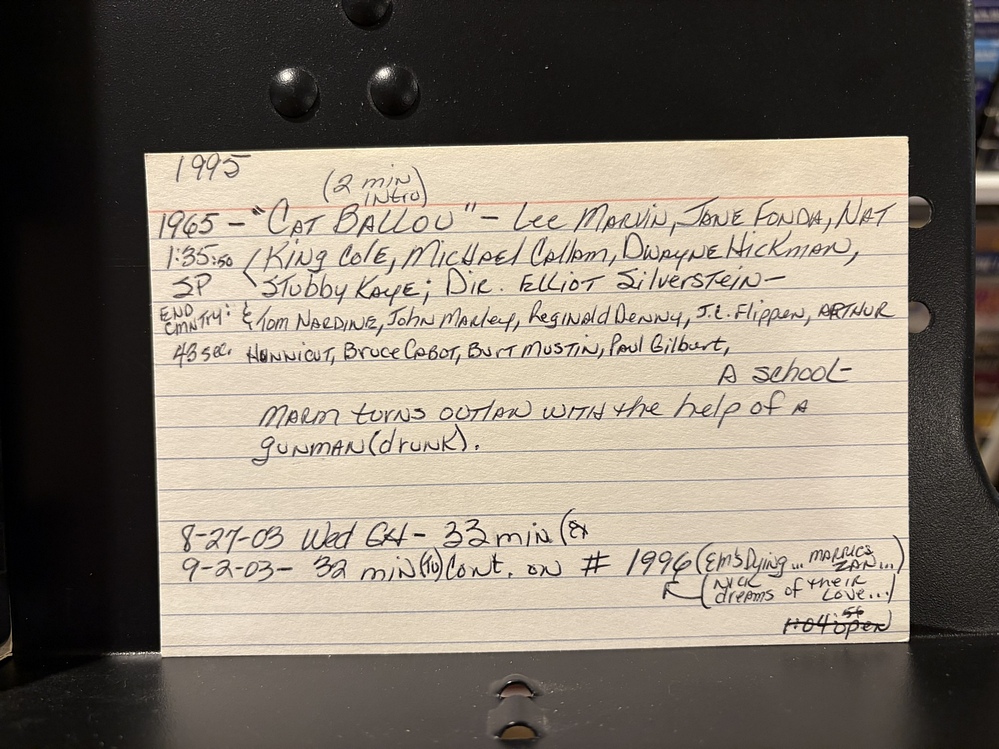 1995
(2 min
Intro)
1965 - "CAT BALLOU" - Lee MARVIN, JANE FONDA, NAT
1:35:50 (King Cole, Michael Callam, DWAYNE HICKMAN,
SP Stubby KAYE; Dir. Elliot Silverstein-
END
CMNTRY: & Tom NARDINE, John Marley, Reginald Denny, J.C. Flippen, ARTHUR
43 sec. HUNNICUT, Bruce CABOT, BURT MUSTIN, Paul Gilbert,
A school-
MARM turns outlaw with the help of A
gunman (drunk).
8-27-03 Wed GH- 33 min (&
9-2-03- 32 min (TU) Cont. on # 1996 (Em's Dying... marries
ZAN...)
(NICK
dreams of their
LOVE...)
1:04:56 open